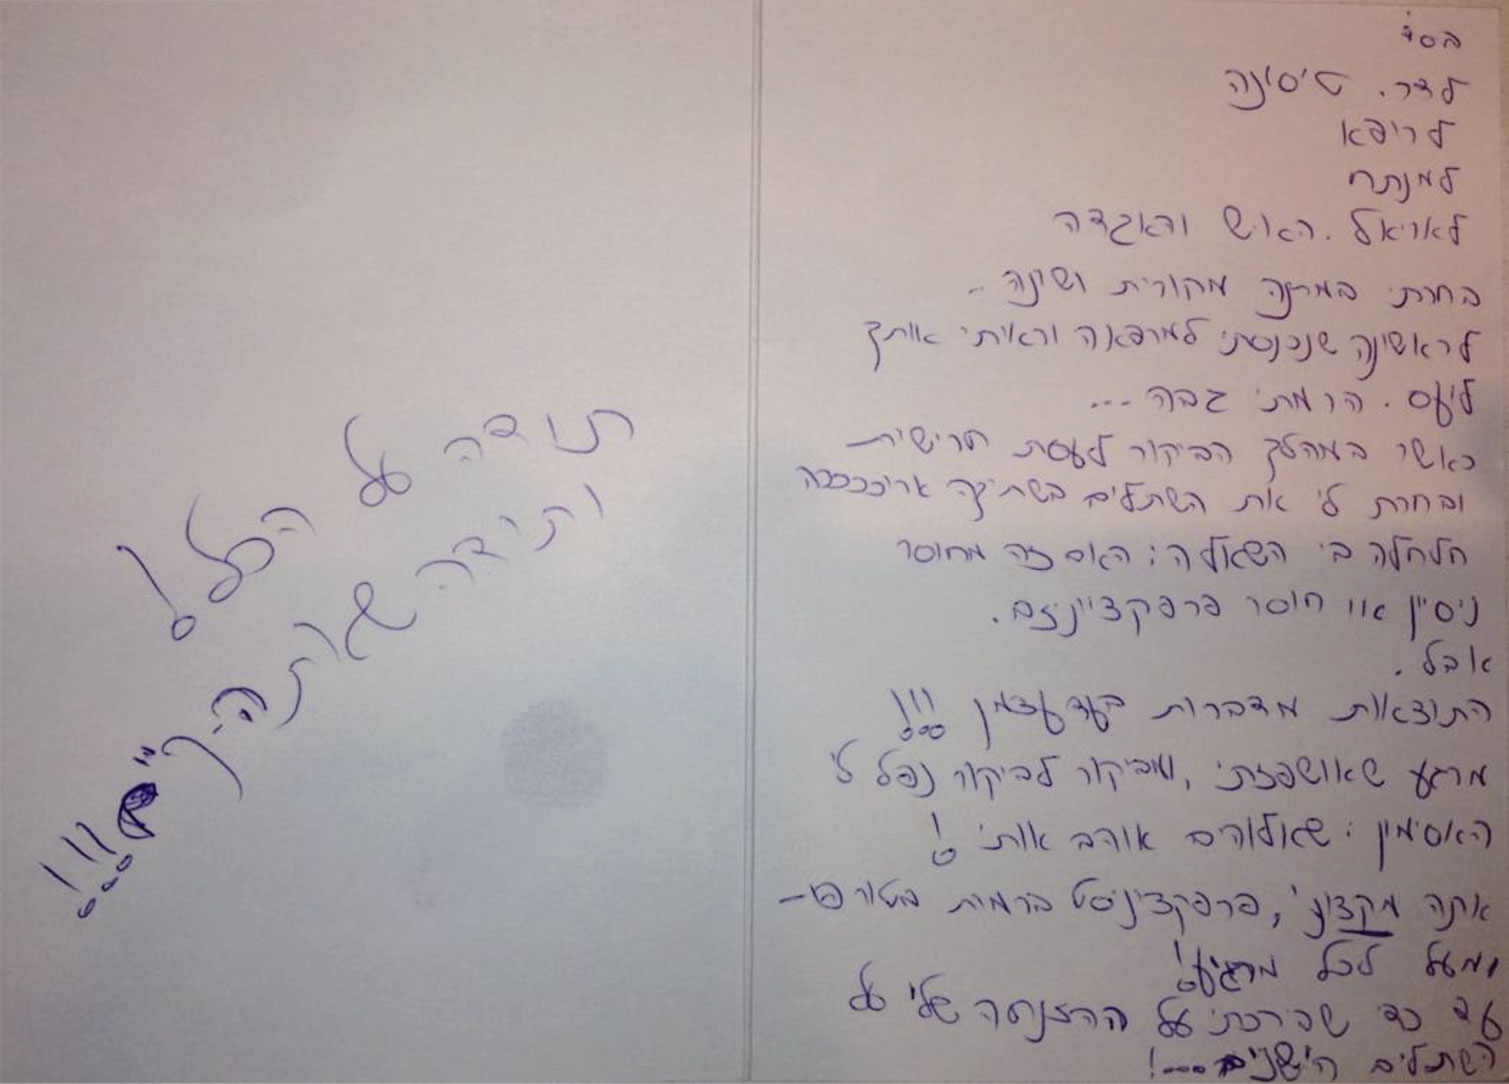 בס״ד
לדר. טיסונה
לרופא
למנתח
לאריאל. האיש והאגדה
בחרתי במתנה מקורית ושונה..
לראשונה שנכנסתי למרפאה וראיתי אותך
לועס. הרמתי גבה...
כאשר במהלך הביקור לעסת חרישית
ובחרת לי את השתלים בשתיקה ארוככככה
חלחלה בי השאלה: האם זה מחוסר
ניסיון או חוסר פרפקציוניזם.
אבל.
התוצאות מדברות בעד עצמן !!!
מרגע שאושפזתי, ומביקור לביקור נפל לי
האסימון: שאלוהים אוהב אותי !
אתה מקצועי, פרפקציוניסט ברמות בטורפו-
ומעל לכל מרגיע!
עד כדי שבירכתי על ההזנחה שלי על
השתלים הישנים....!
תודה על הכל !
ותודה שאתה
!!!